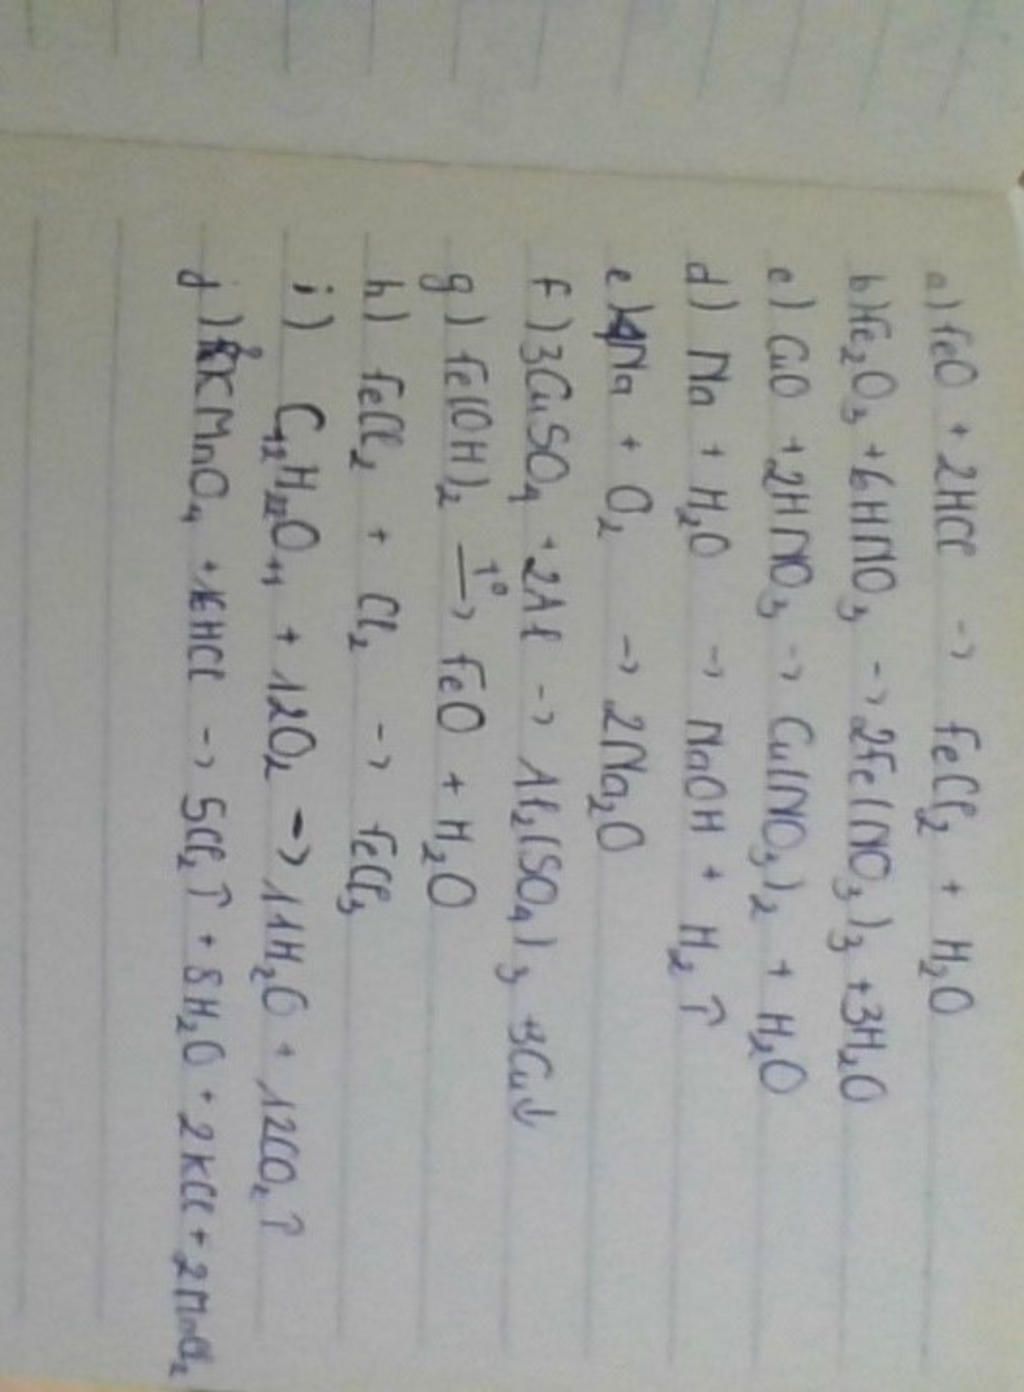 a) FeO + 2HCl -> FeCl₂ + H₂O
b) Fe₂O₃ + 6HNO₃ -> 2Fe(NO₃)₃ + 3H₂O
c) CuO + 2HNO₃ -> Cu(NO₃)₂ + H₂O
d) Na + H₂O -> NaOH + H₂↑
e) 4Na + O₂ -> 2Na₂O
f) 3CuSO₄ + 2Al -> Al₂(SO₄)₃ + 3Cu↓
g) Fe(OH)₂ —t°-> FeO + H₂O
h) FeCl₂ + Cl₂ -> FeCl₃
i) C₁₂H₂₂O₁₁ + 12O₂ -> 11H₂O + 12CO₂↑
j) 2KMnO₄ + 16HCl -> 5Cl₂↑ + 8H₂O + 2KCl + 2MnCl₂